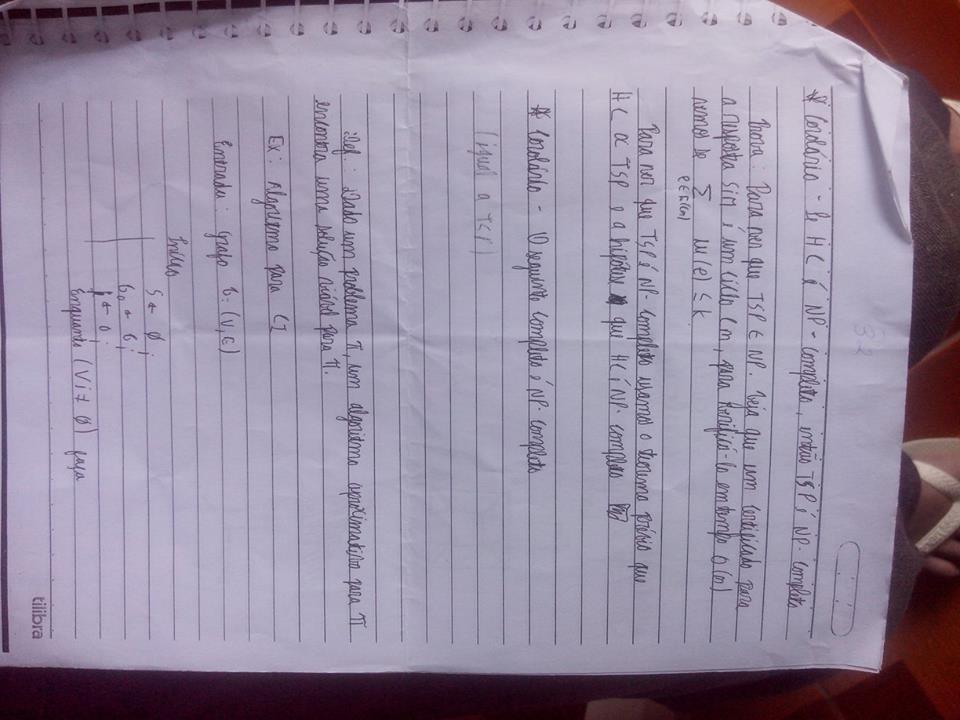 32
* Corolário - Se HC é NP-completo, então TSP é NP-completo
Prova: Para ver que TSP ∈ NP. Veja que um certificado para
a resposta sim é um ciclo Cn, para verificá-lo em tempo O(n)
vemos se ∑ w(e) ≤ k
e∈E(Cn)
Para ver que TSP é NP-completo usamos o teorema prévio que
HC α TSP e a hipótese que HC é NP-completo
* Corolário - O seguinte completo é NP-completo
(igual a TSP)
Def.: Dado um problema π, um algoritmo aproximativo para π
encontra uma solução viável para π.
Ex: Algoritmo para CI
Entrada: grafo G: (V, E)
Início
S ← ∅;
G0 ← G;
i ← 0;
Enquanto (Vi ≠ ∅) faça
tilibra